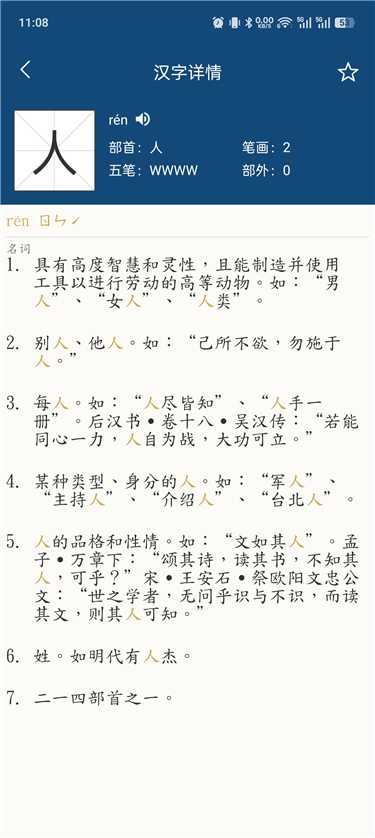 11:08
0.00 KB/S 5G 5G 5
汉字详情
人
rén
部首：人 笔画：2
五笔：WWWW 部外：0
rén ㄖㄣˊ
名词
1. 具有高度智慧和灵性，且能制造并使用
工具以进行劳动的高等动物。如：“男
人”、“女人”、“人类”。
2. 别人、他人。如：“己所不欲，勿施于
人。”
3. 每人。如：“人尽皆知”、“人手一
册”。后汉书●卷十八●吴汉传：“若能
同心一力，人自为战，大功可立。”
4. 某种类型、身分的人。如：“军人”、
“主持人”、“介绍人”、“台北人”。
5. 人的品格和性情。如：“文如其人”。孟
子●万章下：“颂其诗，读其书，不知其
人，可乎？”宋●王安石●祭欧阳文忠公
文：“世之学者，无问乎识与不识，而读
其文，则其人可知。”
6. 姓。如明代有人杰。
7. 二一四部首之一。